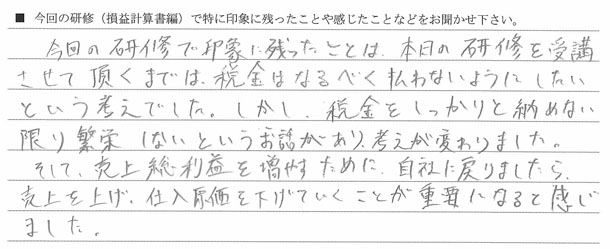 ■ 今回の研修（損益計算書編）で特に印象に残ったことや感じたことなどをお聞かせ下さい。
今回の研修で印象に残ったことは、本日の研修を受講
させて頂くまでは、税金はなるべく払わないようにしたい
という考えでした。しかし、税金をしっかりと納めない
限り繁栄しないというお話があり、考えが変わりました。
そして、売上総利益を増やすために、自社に戻りましたら、
売上を上げ、仕入原価を下げていくことが重要になると感じ
ました。